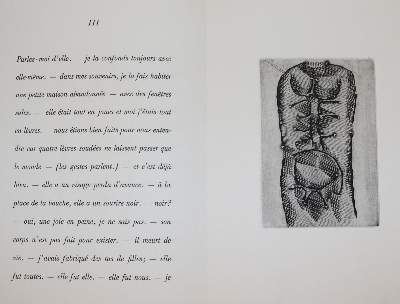 III
Parlez-moi d'elle. — je la confonds toujours avec
elle-même. — dans mes souvenirs, je la fais habiter
une petite maison abandonnée — avec des fenêtres
sales. — elle était tout en joues et moi j'étais tout
en lèvres. — nous étions bien faits pour nous enten-
dre car quatre lèvres soudées ne laissent passer que
le monde — [les gestes parlent.] — et c'est déjà
— elle a un visage perdu d'avance. — à la
place de la bouche, elle a un sourire noir. — noir?
— oui, une joie en peine, je ne sais pas. — son
corps n'est pas fait pour exister. — il meurt de
vie. — j'avais fabriqué des tas de filles; — elle
fut toutes. — elle fut elle. — elle fut nous. — je